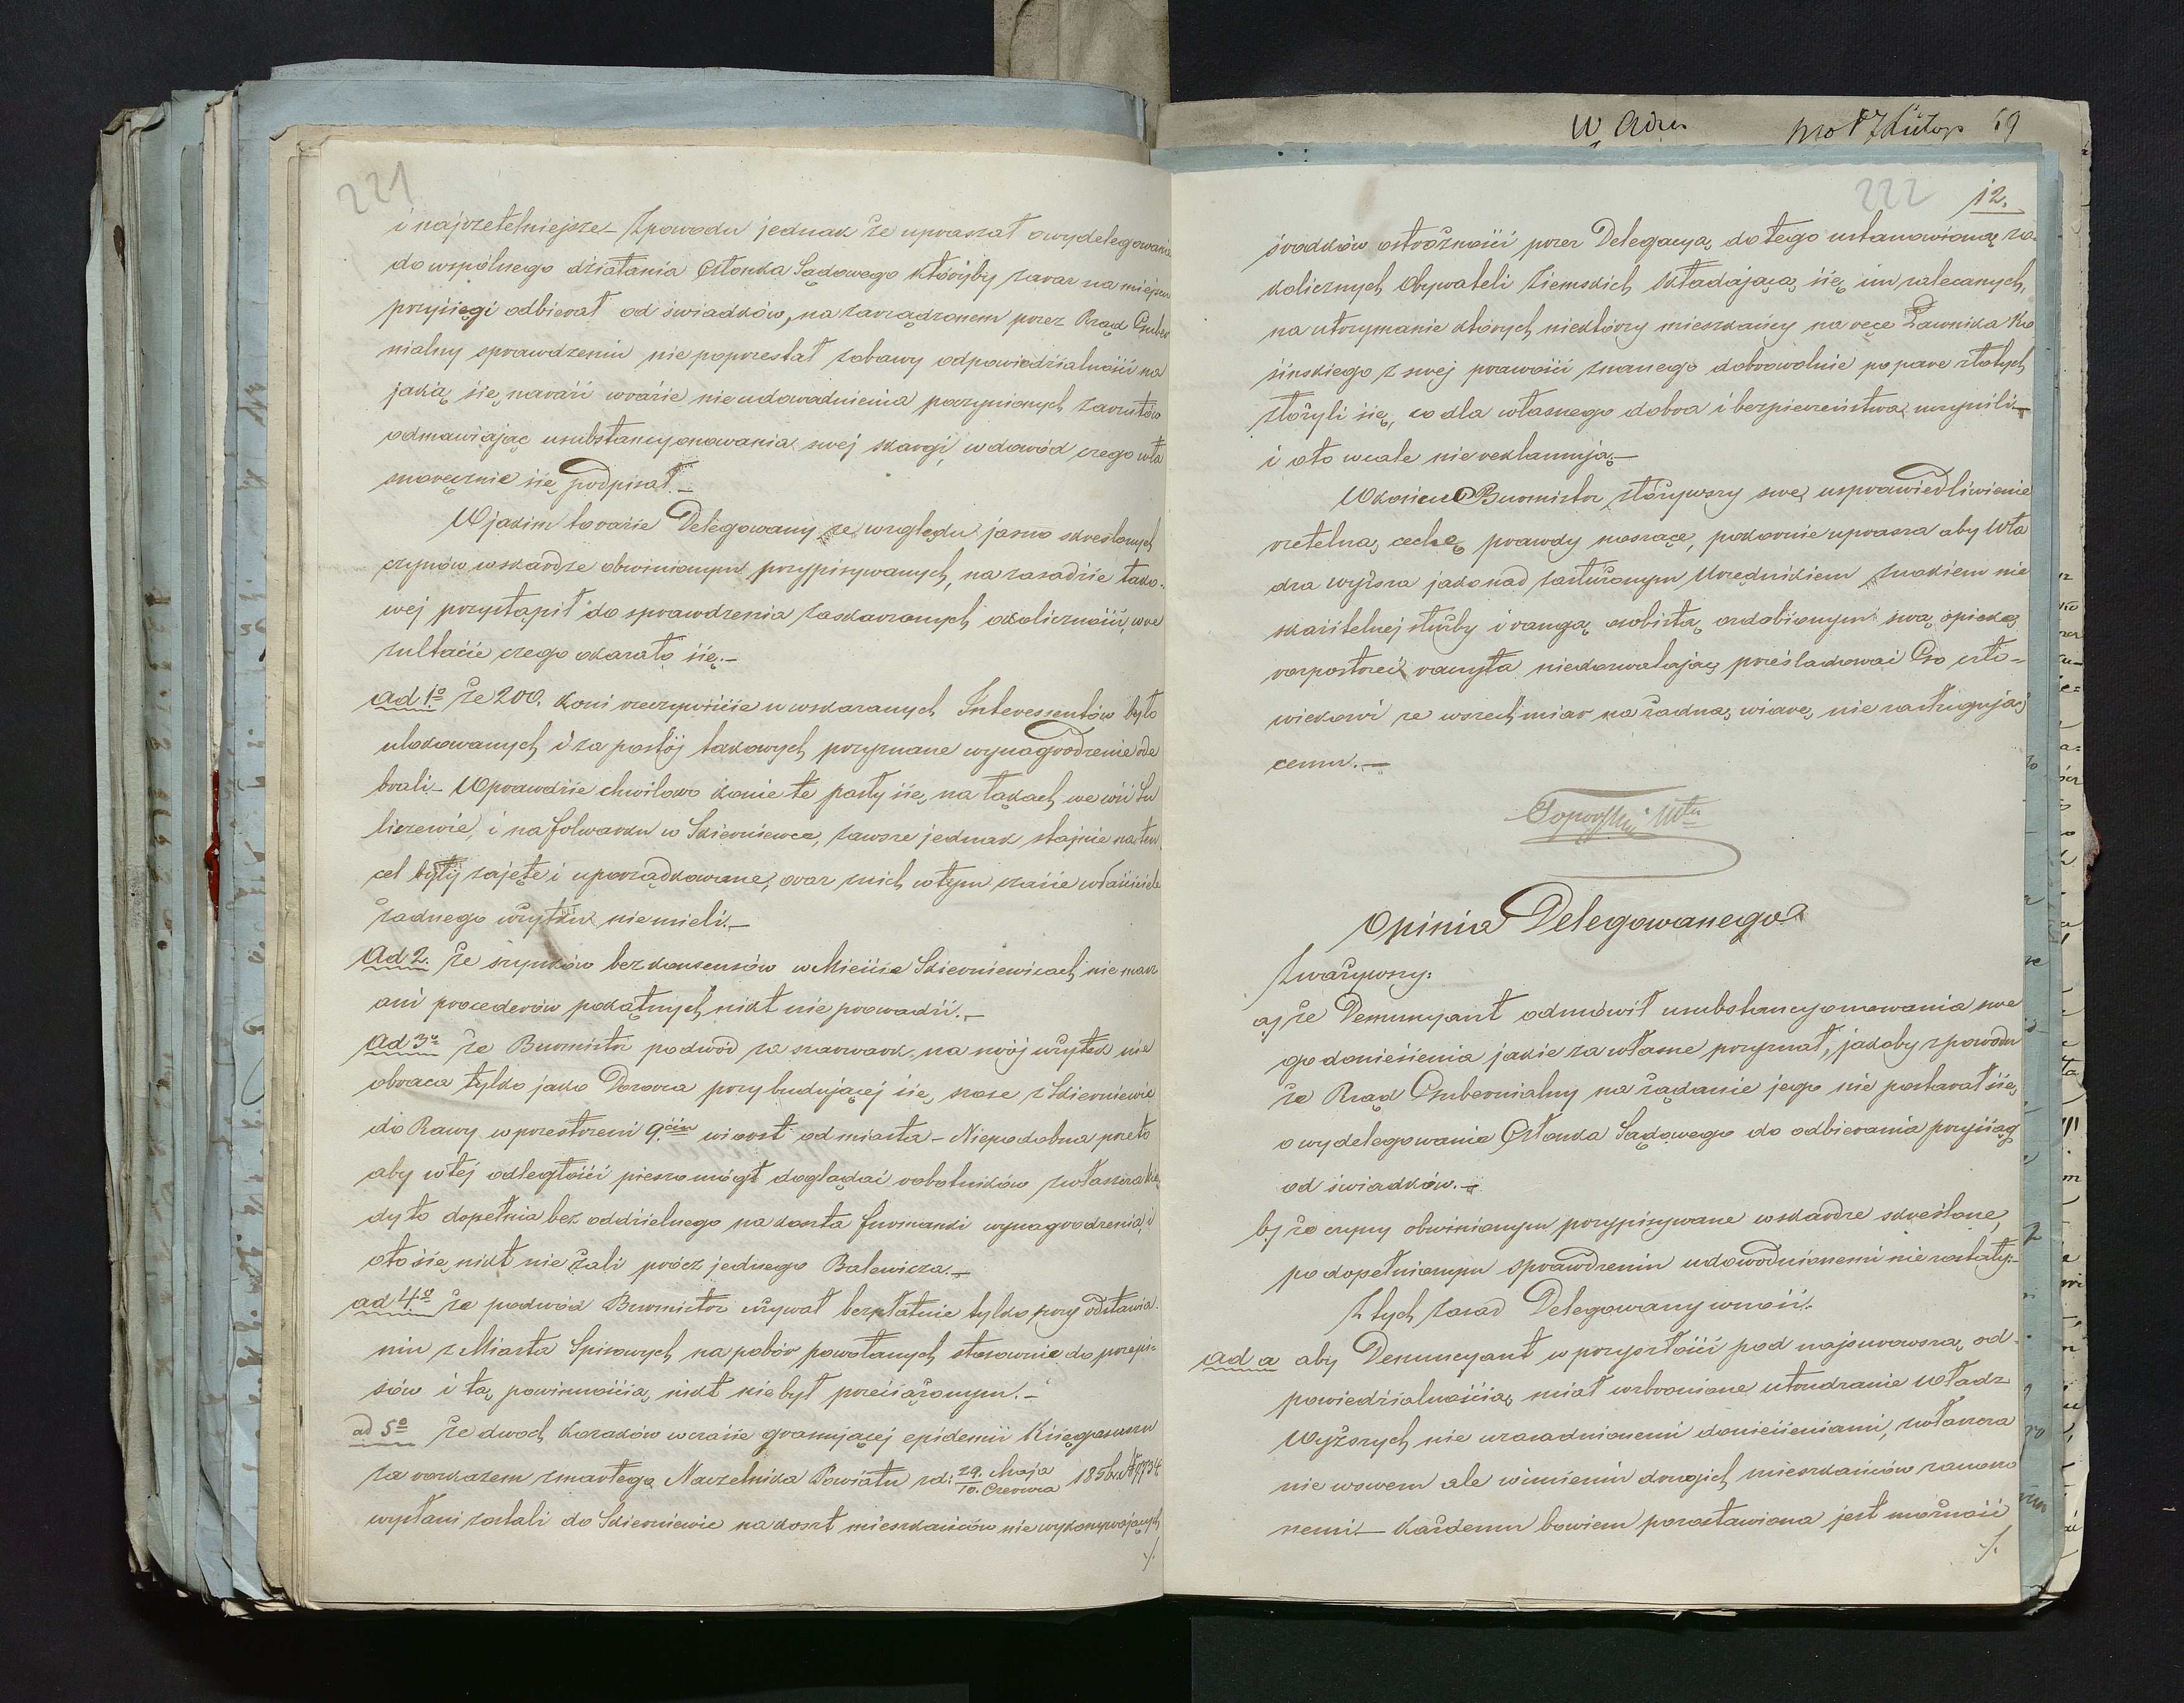 221
i najrzetelniejsze – Zpowodu jednak że upraszał o wydelegowanie
do wspólnego działania Członka Sądowego któryby zaraz na miejscu
przysięgi odbierał od świadków, na zarządzonem przez Rząd Guber
nialny sprawdzeniu nie poprzestał z obawy odpowiedzialność na
jaką się narazi wrazie nieudowodnienia poczynionych zarzutów
odmawiając usubstancyonowania swej skargi, w dowód czego wła
snoręcznie się podpisał. –
W jakim to razie Delegowany, ze względu jasno skreślonych
czynów w skardze obwinionym przypisywanych, na zasadzie tako-
wej przystąpił do sprawdzenia zaskarżonych okoliczności, w re
zultacie czego okazało się. –
ad 1o że 200. koni rzeczywiście u wskazanych Interessentów było
ulokowanych i za postój takowych przyznane wynagrodzenie ode
brali – Wprawdzie chwilowo konie te pasły się na łąkach we wsi Su
liszewie, i na folwarku w Skierniewce, zawsze jednak stajnie na ten
cel były zajęte i uporządkowane, oraz z nich w tym czasie właściciele
żadnego użytku nie mieli. –
Ad 2. że szynków bez konsensów w Mieście Skierniewicach nie masz
ani procederów pokątnych nikt nie prowadzi. –
Ad 3o że Burmistrz podwód za szarwark na swój użytek nie
obraca tylko jako Dozorca przy budującej się szose z Skierniewic
do Rawy w przestrzeni 9.ciu wiorst od miasta – Niepodobna przeto
aby w tej odległości pieszo mógł doglądać robotników zwłaszcza kie
dy to dopełnia bez oddzielnego na koszta furmanki wynagrodzenia, i
oto się nikt nie żali prócz jednego Balewicza. –
ad 4.o że podwód Burmistrz używał bezpłatnie tylko przy odstawia-
niu z Miasta Spisowych na pobór powołanych stosownie do przepi-
sów i tą powinnością nikt nie był przeciążonym. –
ad 5o że dwóch Kozaków w czasie grasującej epidemii Księgosuszu
za rozkazem zmarłego Naczelnika Powiatu zd: 29. Maja / 10. Czerwca 185
wysłani zostali do Skierniewic na koszt mieszkańców nie wykonywających
./.
W
69
222
12.
środków ostrożności przez Delegacyą do tego ustanowioną z o-
kolicznych Obywateli Ziemskich składającą się im zalecanych,
na utrzymanie których niektórzy mieszkańcy na ręce Ławnika Ko
sińskiego z swej prawości znanego dobrowolnie po parę złotych
złożyli się, co dla własnego dobra i bezpieczeństwa uczynili –
i oto wcale nie reklamują. –
Wkońcu Burmistrz złożywszy swe usprawiedliwienie
rzetelną cechę prawdy noszące, pokornie uprasza aby Wła
dza wyższa jako nad zasłużonym Urzędnikiem znakiem nie
skazitelnej służby i rangą osobistą ozdobionym swą opiekę
rozpostrzeć raczyła niedozwalając prześladować Go czło-
wiekowi ze wszech miar na żadną wiarę nie zasługują
cemu. –
Opinia Delegowanego
Zważywszy:
a) że Denuncyant odmówił usubstancyonowania swe
go doniesienia jakie za własne przyznał, jakoby z powodu
że Rząd Gubernialny na żądanie jego nie postarał się
o wydelegowanie Członka Sądowego do odbierania przysiąg
od świadków. –
b) że czyny obwinionym przypisywane w skardze skreślone,
po dopełnionym sprawdzeniu udowodnionemi nie zostały. –
Z tych zasad Delegowany wnosi.
ad a aby Denuncyant w przyszłości pod najsurowszą od-
powiedzialnością miał wzbronione utrudzanie Władz
Wyższych nie uzasadnionemi doniesieniami, zwłaszcza
nie w swem ale w imieniu drugich mieszkańców zanoszo
nemi – każdemu bowiem pozostawiona jest możność
./.